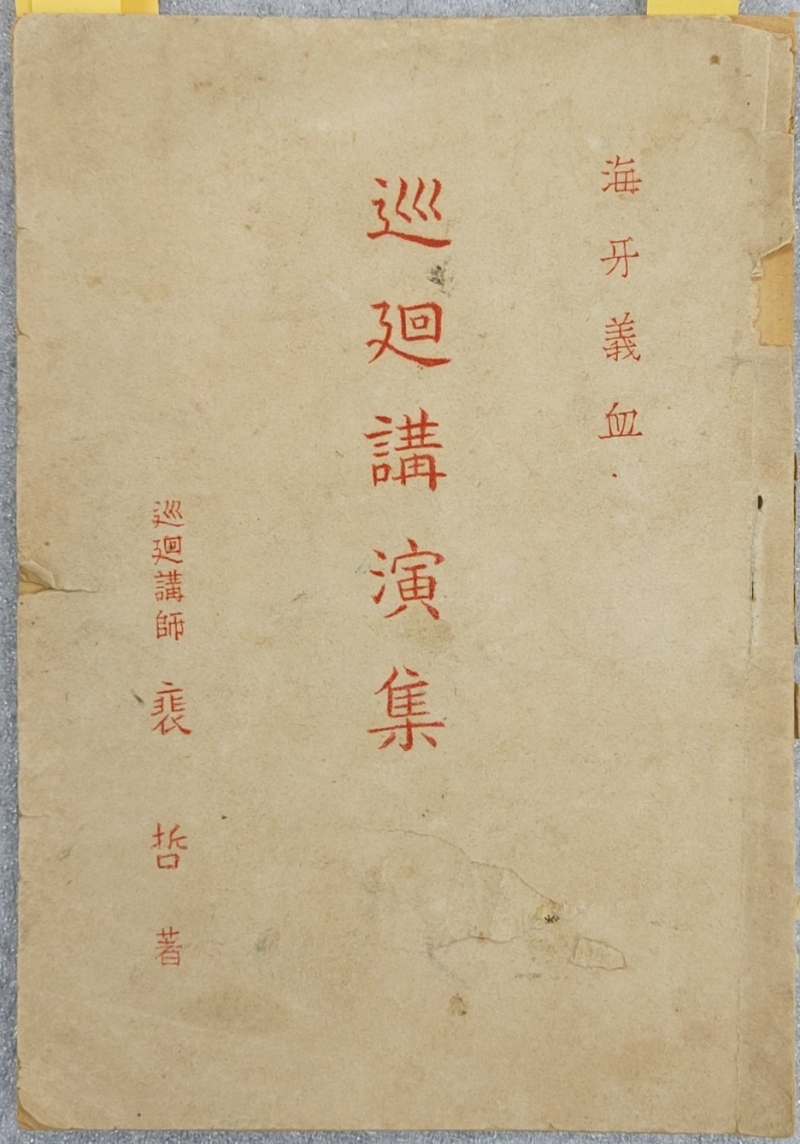 海牙義血
巡廻講演集
巡廻講師 裵哲著